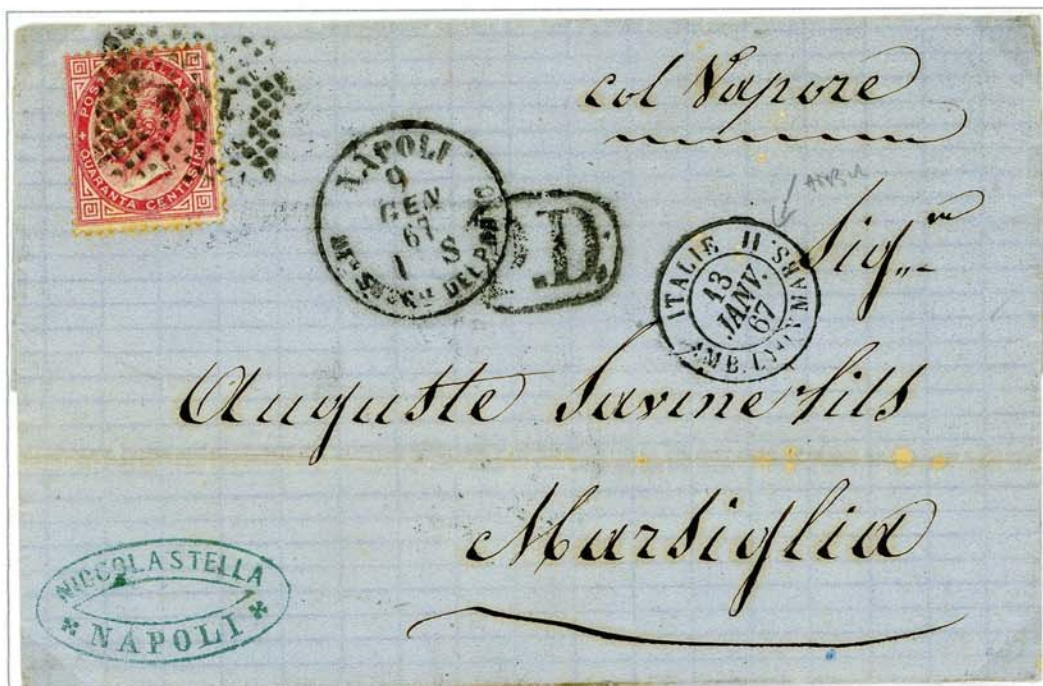 POSTE ITALIANE
QUARANTA CENTESIMI
col Vapore
NAPOLI
9
GEN
67
1 S
P.D.
ITALIE
13
JANV.
67
AMB. LYON A MARS. II
Sig.re
Auguste Savine fils
Marsiglia
NICCOLA STELLA
NAPOLI